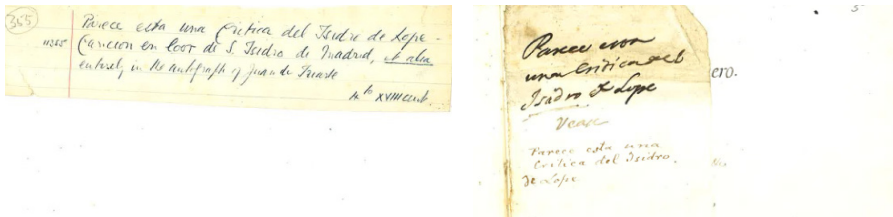 355
11355
Parece esta una Critica del Isidro de Lope -
Cancion en loor de S. Isidro de Madrid, et alia
entirely in the autograph of Juan de Iriarte
4to XVIII cent.
5
Parece una
una Critica del
Isidro de Lope
Vease
Parece esta una
Critica del Isidro.
de Lope
ero.